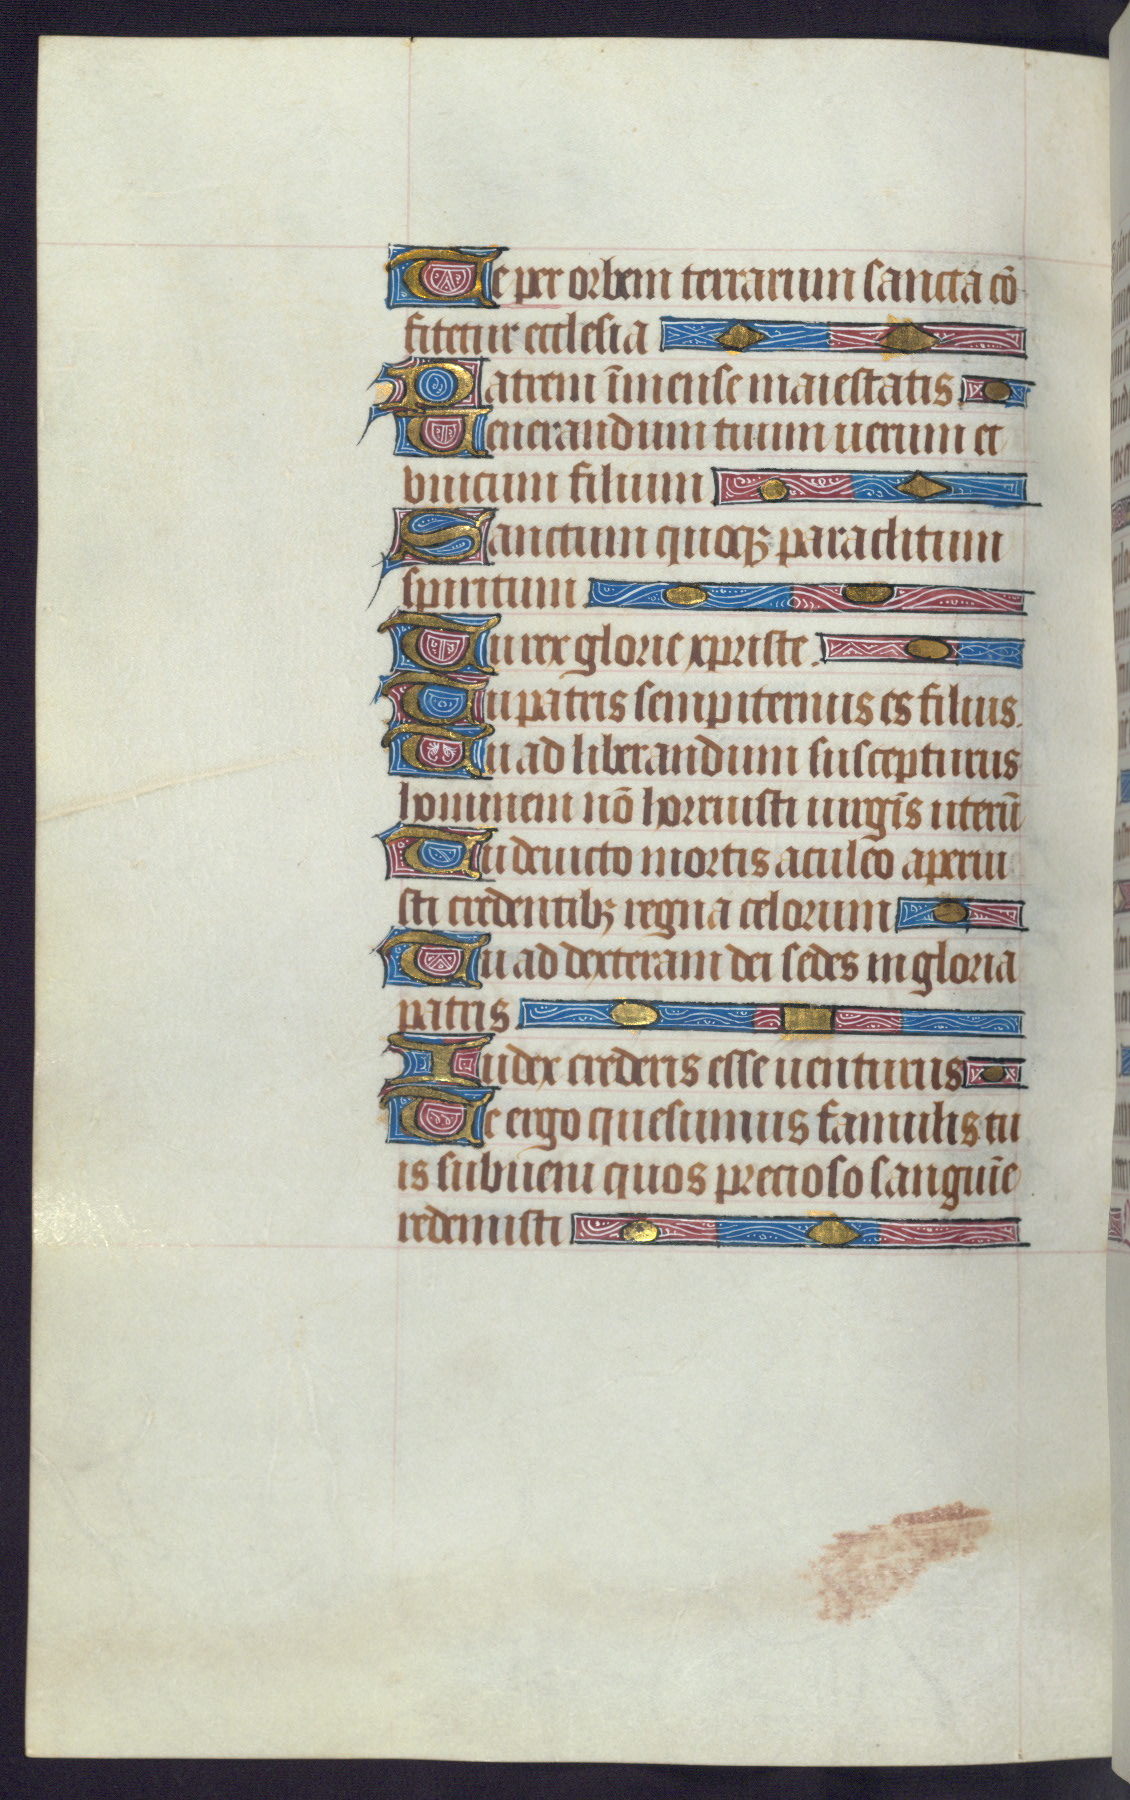 Te per orbem terrarum sancta cō
fitetur ecclesia
Patrem īmense maiestatis
Uenerandum tuum uerum et
vnicum filium
Sanctum quoqꝫ paraclitum
spiritum
Tu rex glorie xpriste.
Tu patris sempiternus es filius.
Tu ad liberandum suscepturus
hominem nō horruisti uirgīs uterū
Tu deuicto mortis aculeo aperui
sti credentibꝫ regna celorum
Tu ad dexteram dei sedes in gloria
patris
Iudex crederis esse uenturus
Te ergo quesumus famulis tu
is subueni quos precioso sanguīe
redemisti